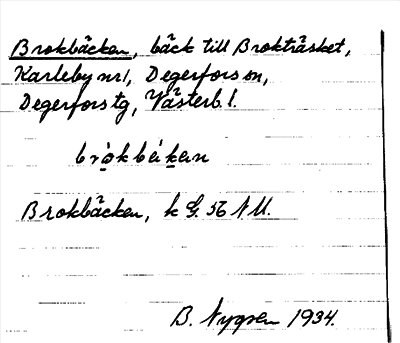 Brokbäcken, bäck till Brokträsket,
Karleby nr 1, Degerfors sn,
Degerfors tg, Västerb. l.
Brokbäcken, k G. 56 NU.
B. Nygren 1934.